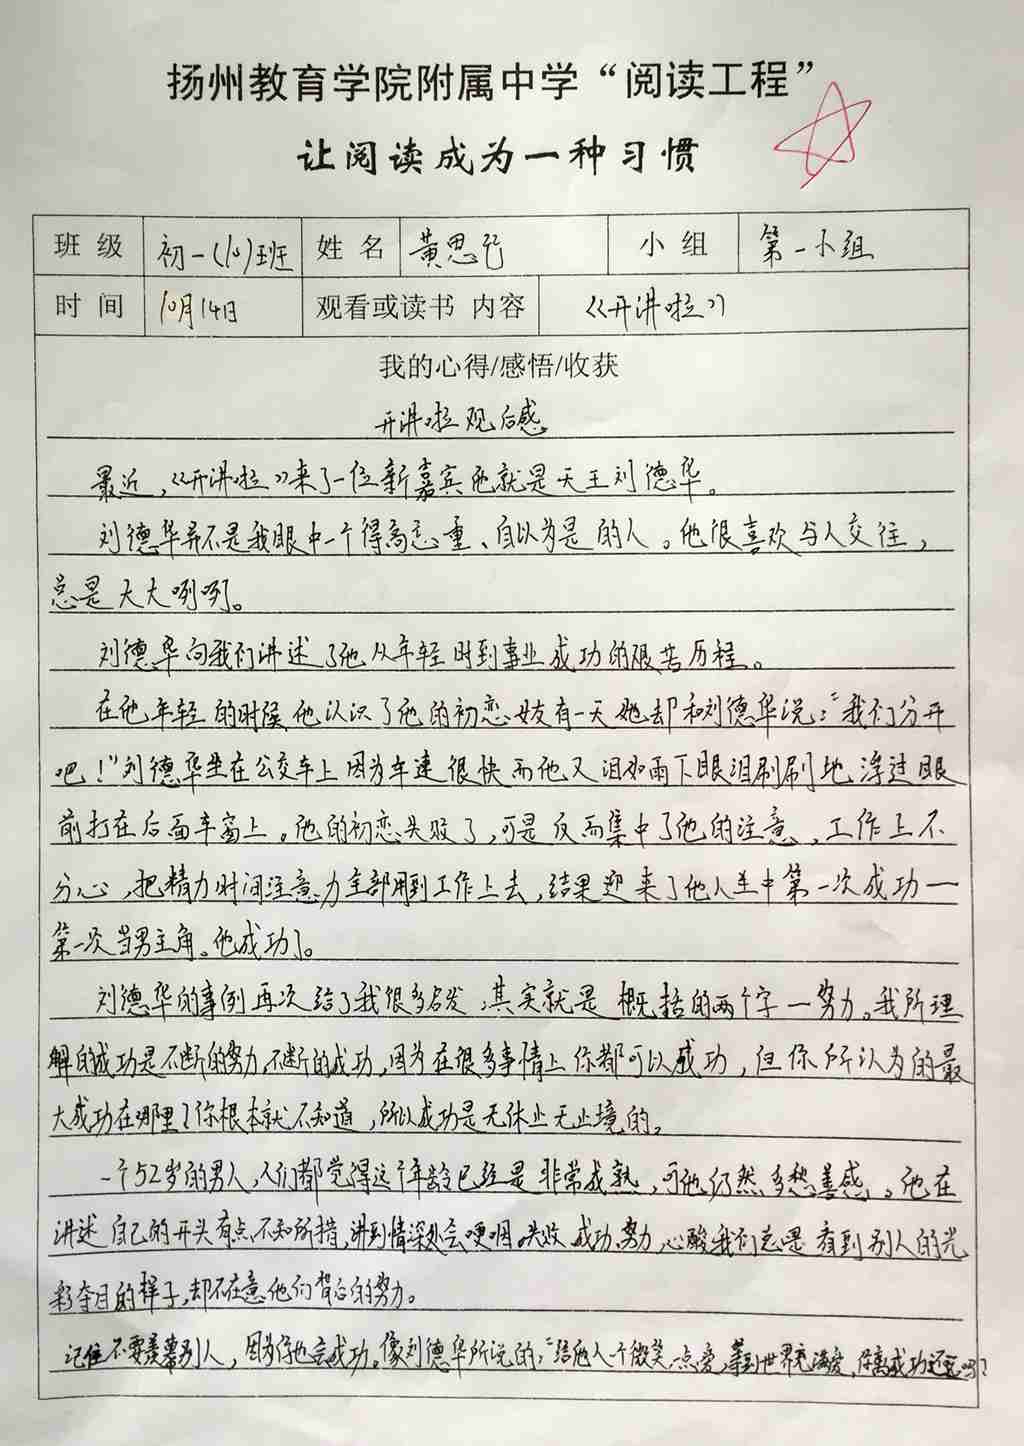 扬州教育学院附属中学“阅读工程”
让阅读成为一种习惯
班级 初一(10)班 姓名 黄思 小组 第一小组
时间 10月14日 观看或读书 内容 《开讲啦》
我的心得/感悟/收获
开讲啦观后感
最近，《开讲啦》来了一位新嘉宾他就是天王刘德华。
刘德华并不是我眼中一个得高忘重、自以为是的人。他很喜欢与人交往，
总是大大咧咧。
刘德华向我们讲述了他从年轻时到事业成功的艰苦历程。
在他年轻的时候他认识了他的初恋女友有一天她却和刘德华说：“我们分开
吧！”刘德华坐在公交车上因为车速很快而他又泪如雨下眼泪刷刷地浮过眼
前打在后面车窗上。他的初恋失败了，可是反而集中了他的注意，工作上不
分心，把精力时间注意力全部用到工作上去，结果迎来了他人生中第一次成功一
第一次当男主角。他成功了。
刘德华的事例再次给了我很多启发，其实就是概括的两个字一努力。我所理
解的成功是不断的努力，不断的成功，因为在很多事情上你都可以成功，但你所认为的最
大成功在哪里？你根本就不知道，所以成功是无休止无止境的。
一个52岁的男人，人们都觉得这个年龄已经是非常成熟，可他仍然多愁善感。他在
讲述自己的开头有点不知所措，讲到情深处会哽咽。失败、成功、努力、心酸我们总是看到别人的光
彩夺目的样子，却不在意他们背后的努力。
记住不要羡慕别人，因为你也会成功。像刘德华所说的：“给他人一个微笑一点爱，等到世界充满爱，你离成功还远吗？